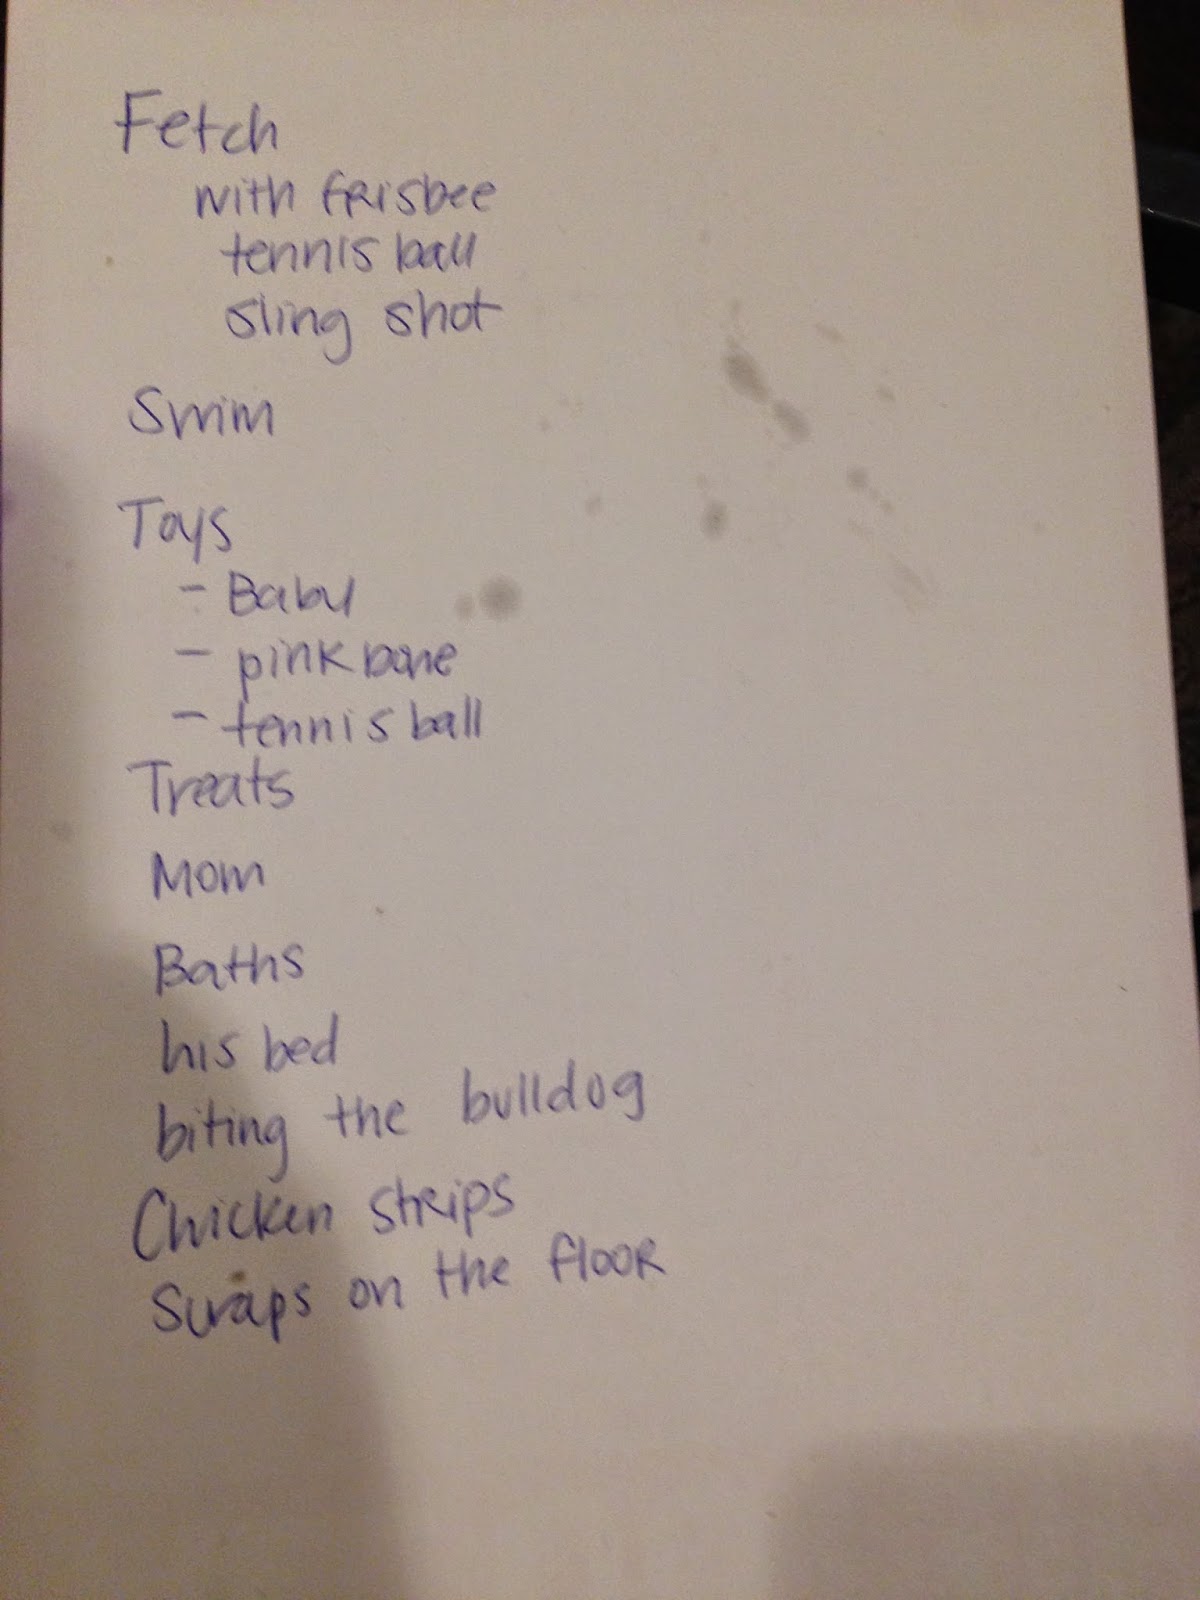 Fetch
with frisbee
tennis ball
sling shot
Swim
Toys
- Baby
- pink bone
- tennis ball
Treats
Mom
Baths
his bed
biting the bulldog
Chicken strips
Scraps on the floor